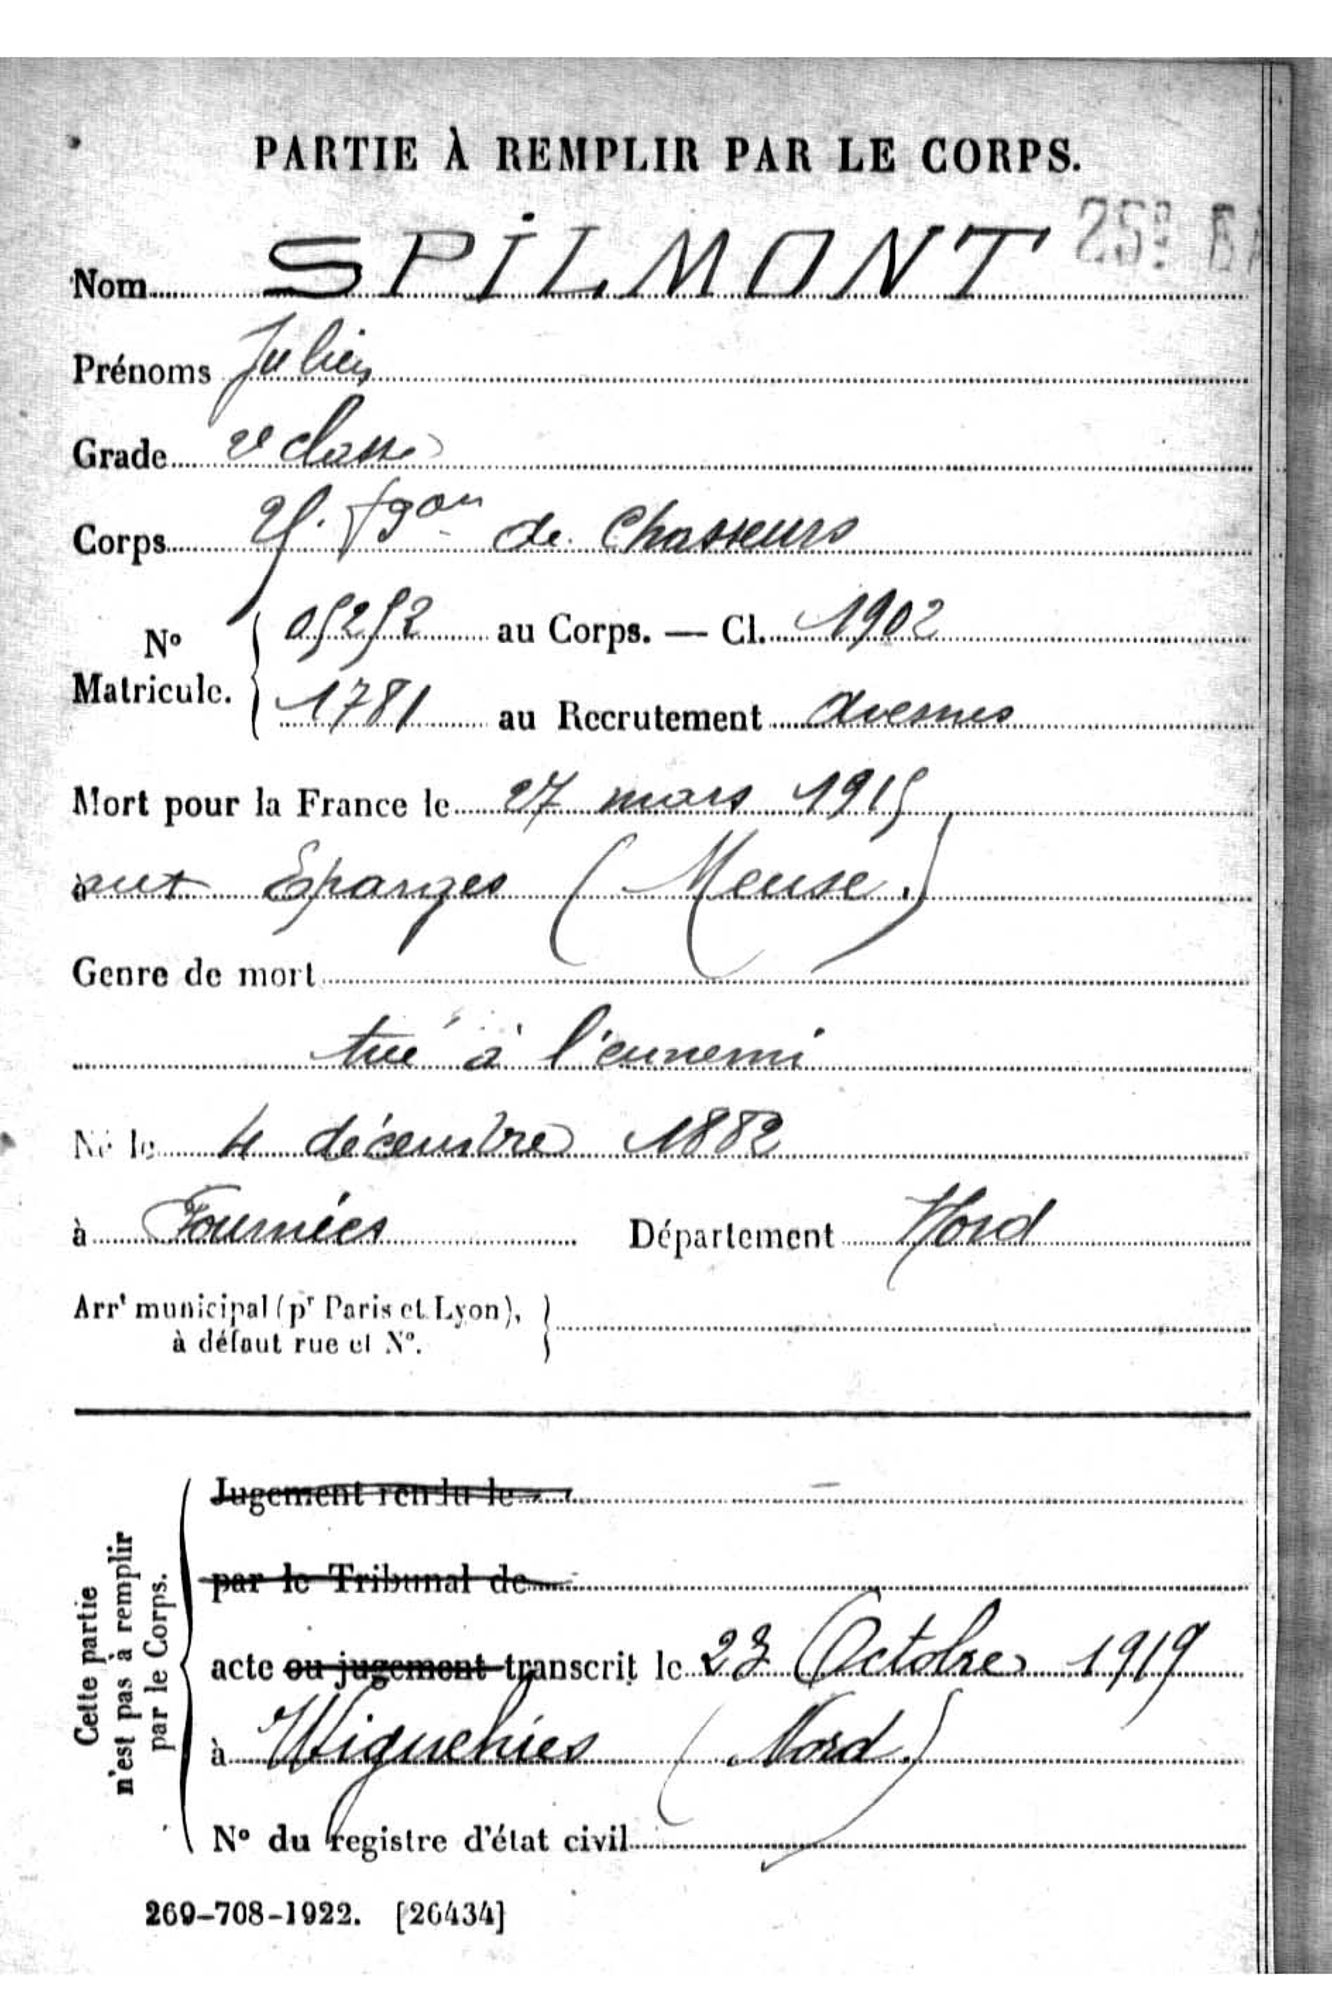 PARTIE À REMPLIR PAR LE CORPS.
25e B
Nom SPILMONT
Prénoms Julien
Grade 2e classe
Corps 25. de Chasseurs
No Matricule. { 05252 au Corps. — Cl. 1902
1781 au Recrutement Avesnes
Mort pour la France le 27 mars 1915
à aux Eparges (Meuse.)
Genre de mort
tué à l'ennemi
Né le 4 décembre 1882
à Fourmies Département Nord
Arrt municipal (pr Paris et Lyon), }
à défaut rue et No.
Cette partie
n'est pas à remplir
par le Corps.
Jugement rendu le
par le Tribunal de
acte ou jugement transcrit le 23 Octobre 1919
à Wignehies (Nord.)
No du registre d'état civil
269-708-1922. [26434]